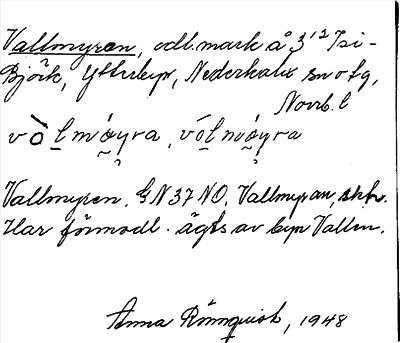 Vallmyran, odl.mark å 3¹² Isi-
Björk, Ytterbyn, Nederkalix sn o fg,
Norrb. l
Vallmyren. GN 37 NO. Vallmyran,
Har förmodl. ägts av byn Vallen.
Anna Rönnquist, 1948